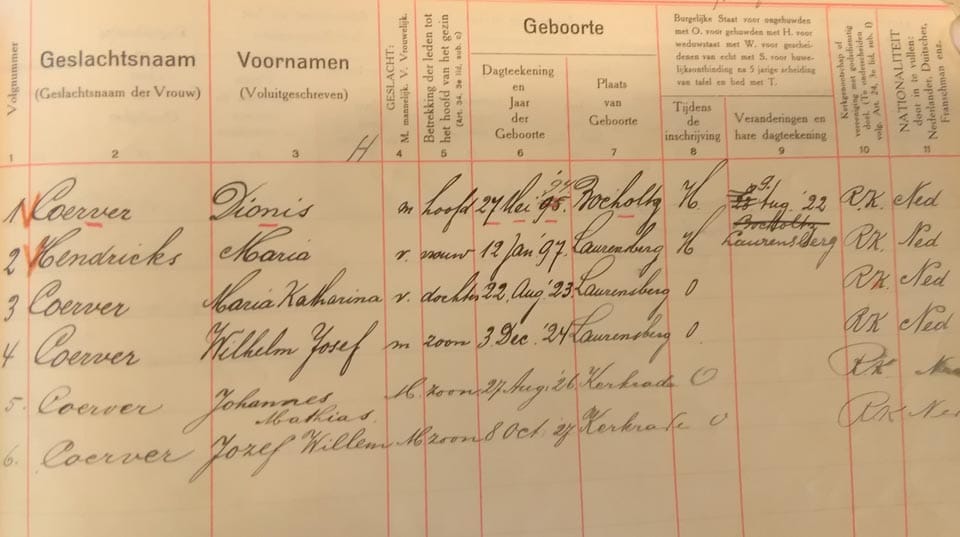 Volgnummer
1
Geslachtsnaam
(Geslachtsnaam der Vrouw)
2
Voornamen
(Voluitgeschreven)
3
H
GESLACHT:
M. mannelijk. V. Vrouwelijk.
4
Betrekking der leden tot
het hoofd van het gezin
(Art. 34, 3e lid, sub. c)
5
Geboorte
Dagteekening
en
Jaar
der
Geboorte
6
Plaats
van
Geboorte
7
Burgelijke Staat voor ongehuwden
met O. voor gehuwden met H. voor
weduwstaat met W. voor geschei-
denen van echt met S. voor huwe-
lijksontbinding na 5 jarige scheiding
van tafel en bed met T.
Tijdens
de
inschrijving
8
Veranderingen en
hare dagteekening
9
Kerkgenootschap of
vereeniging met godsdienstig
doel. (Te onderscheiden
volg. Art. 24, 3e lid, sub. f)
10
NATIONALITEIT
door in te vullen:
Nederlander, Duitscher,
Franschman enz.
11
1 Coerver Dionis m hoofd 27 Mei '95. '94 Bocholtz H 9. Aug. 22 R.K. Ned
Bocholtz
2 Hendricks Maria v. vrouw 12 Jan '97. Laurensberg H Laurensberg RK. Ned
3 Coerver Maria Katharina v. dochter 22. Aug '23. Laurensberg O RK. Ned
4 Coerver Wilhelm Josef m zoon 3. Dec. '24 Laurensberg O. RK Ned
5. Coerver Johannes Mathias. M. zoon 27 Aug. '26 Kerkrade O RK
6. Coerver Jozef Willem M zoon 8 Oct. '27 Kerkrade O RK Ned